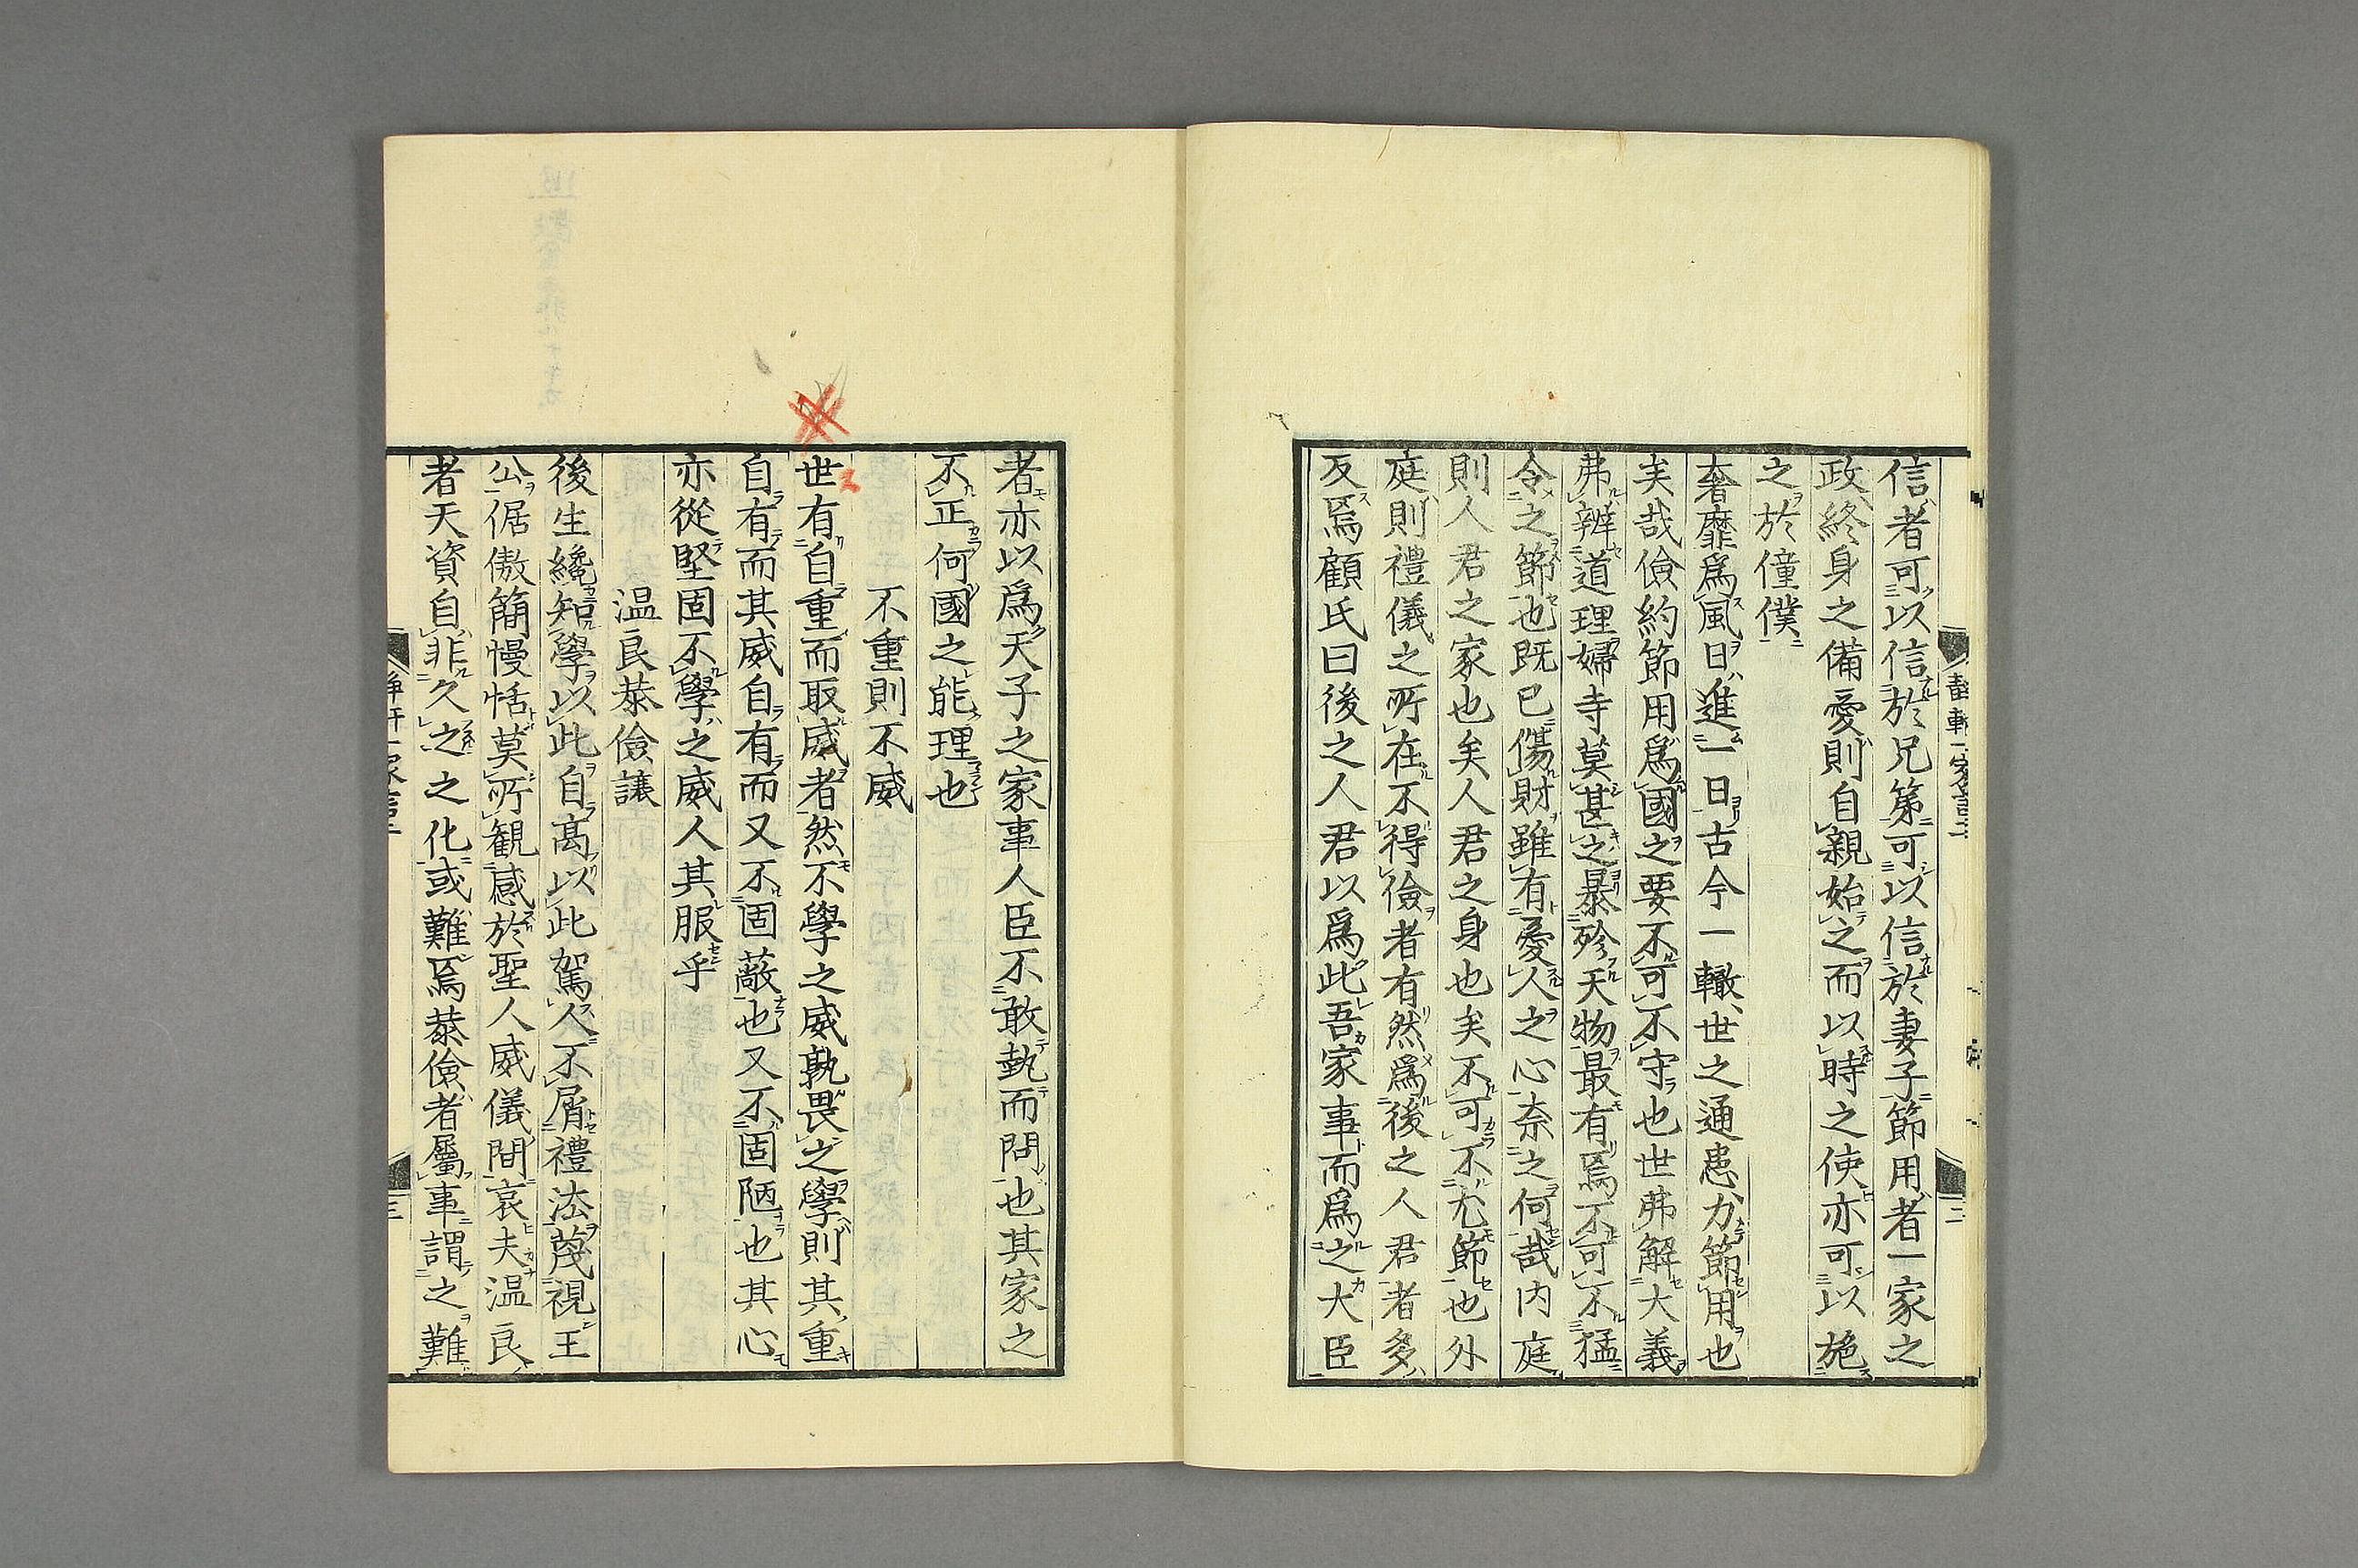 信者可以信於兄第可以信於妻子節用者一家之
政終身之備愛則自親始之而以時之使亦可以施
之於僮僕
奢靡爲風日進一日古今一轍世之通患力節用也
矣哉儉約節用爲國之要不可不守也世弗解大義
弗辨道理婦寺莫甚之暴殄天物最有焉不可不猛
令之節也既已傷財雖有愛人之心奈之何哉内庭
則人君之家也矣人君之身也矣不可不尤節也外
庭則禮儀之所在不得儉者有然爲後之人君者多
反焉顧氏曰後之人君以爲此吾家事而爲之大臣
者亦以爲天子之家事人臣不敢執而問也其家之
不正何國之能理也
不重則不威
世有自重而取威者然不學之威孰畏之學則其重
自有而其威自有而又不固蔽也又不固陋也其心
亦從堅固不學之威人其服乎
温良恭儉讓
後生纔知學以此自高以此駕人不屑禮法蔑視王
公倨傲簡慢恬莫所観感於聖人威儀間哀夫温良
者天資自非久之之化或難焉恭儉者屬事謂之難